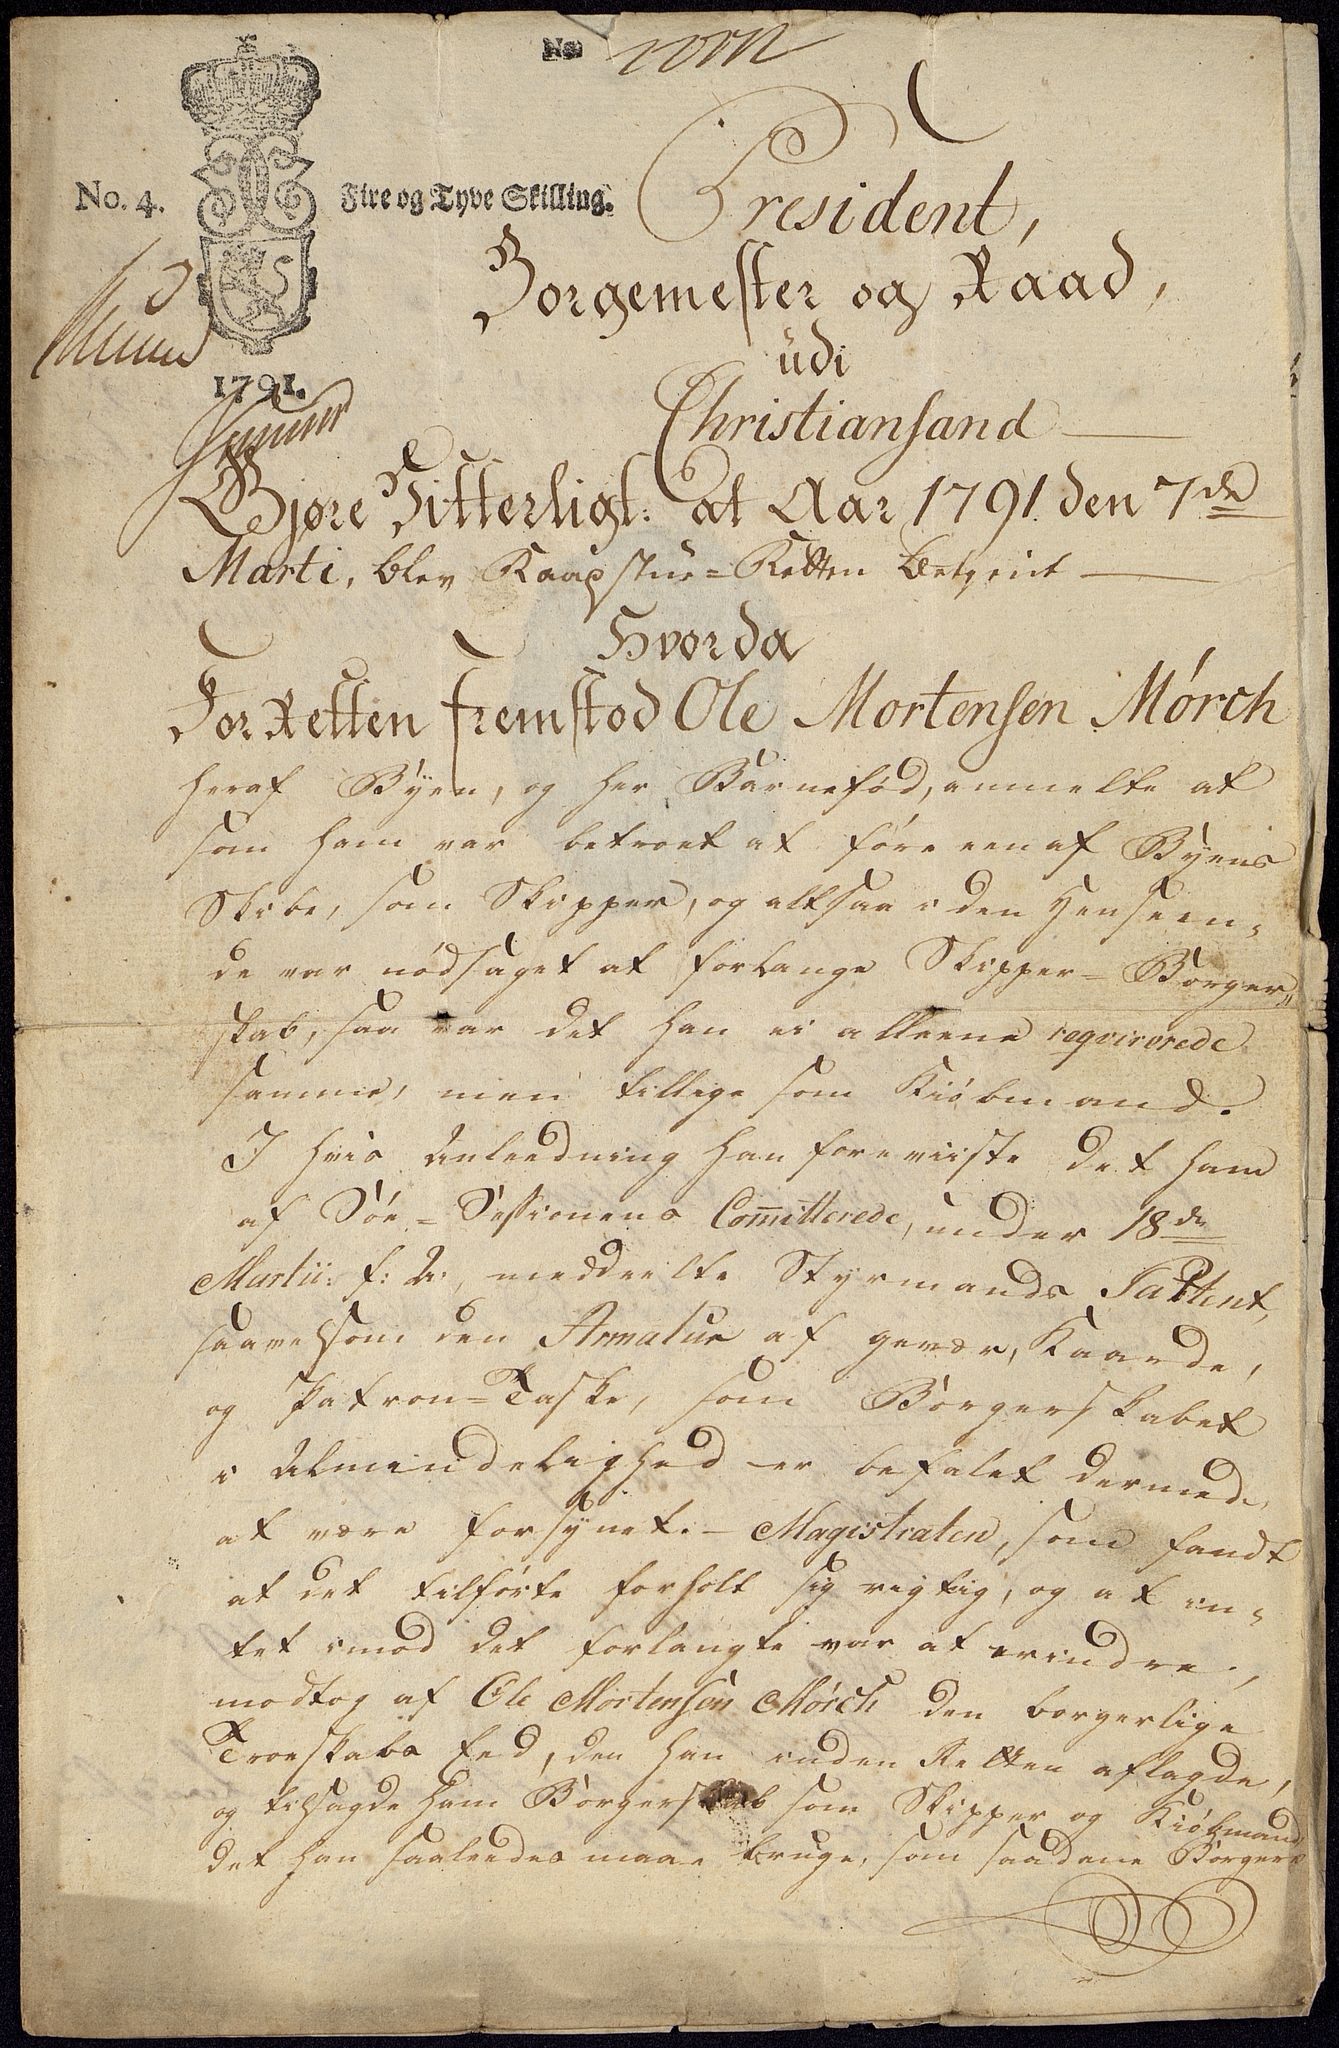 No.
No. 4.
Fire og Tyve Skilling.
1791.
President,
Borgemester og Raad,
udi
Christiansand
Gjøre Vitterligt: at Aar 1791. den 7de
Marti, blev Raadstue=Retten betient
Hvorda
For Retten fremstod Ole Mortensen Mórch
heraf Byen, og her Barnefód, anmelte at
som ham var betroet at fóre een af Byens
Skibe, som Skipper, og altsaa i den Henseen,
de var nódsaget at forlange Skipper=Borger„
skab, saa var det han ei alleene reqvirerede
samme, men tillige som Kióbmand.
I hvis Anleedning han foreviiste det ham
af Sóe=Sessionens Com̄itterede, under 18de
Martii: f: A:, meddeelte Styrmands Pattent,
saavelsom den Armatur af gevær, Kaarde,
og Patron=Taske, som Borgerskabet
i Almindelighed er befalet dermed
at være forsynet. - Magistraten, som fandt
at det tilfórte forholt sig rigtig, og at in,
tet imod det forlangte var at erindre,
modtog af Ole Mortensen Mórch den borgerlige
Troeskabs Eed, den han inden Retten aflagde,
og tilsagde ham Borgerskab som Skipper og Kióbmand,
det han saaleedes maae bruge, som saadane Borgere